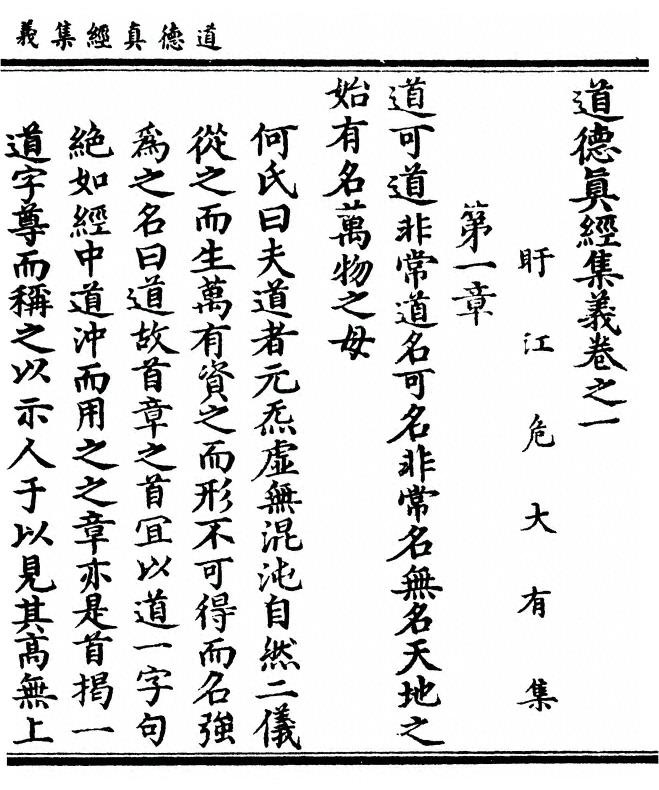 道德真經集義
道德眞經集義卷之一
盱江危大有集
第一章
道可道非常道名可名非常名無名天地之
始有名萬物之母
何氏曰夫道者元炁虛無混沌自然二儀
從之而生萬有資之而形不可得而名強
爲之名曰道故首章之首冝以道一字句
絶如經中道沖而用之之章亦是首揭一
道字尊而稱之以示人于以見其高無上